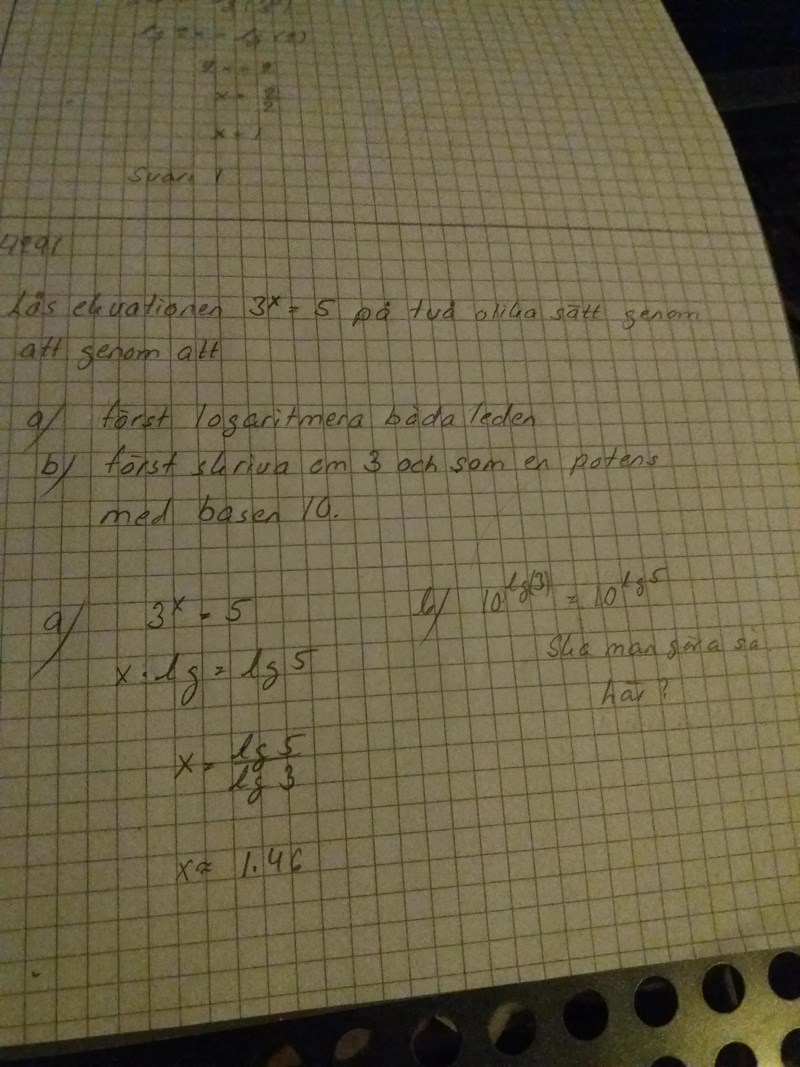 lg 2x = lg (2)
2x = 2
x = 2/2
x = 1
Svar: 1
Lös ekvationen 3^x = 5 på två olika sätt genom
att genom att
a) först logaritmera båda leden
b) först skriva om 3 och som en potens
med basen 10.
a) 3^x = 5
x · lg = lg 5
x = lg 5 / lg 3
x ≈ 1.46
b) 10^lg(3) = 10^lg 5
Ska man göra så
här?